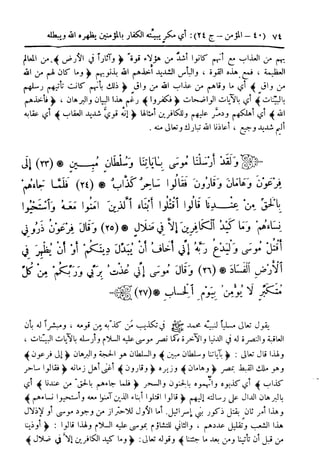 ٧٤ (٤٠) - المؤمن - ج ٢٤: أي مكر يبيّته الكفار بالمؤمنين يظهره الله ويبطله
بهم من العذاب مع أنهم كانوا أشدّ من هؤلاء قوة ﴿وآثاراً في الأرض﴾ من المعالم
العظيمة، فمع هذه القوة، والبأس الشديد أخذهم الله بذنوبهم ﴿وما كان لهم من الله
من واق﴾ أي ما وقاهم من عذاب الله من واق ﴿ذلك بأنهم كانت تأتيهم رسلهم
بالبيّنات﴾ أي بالآيات الواضحات ﴿فكفروا﴾ رغم هذا البيان والبرهان، ﴿فأخذهم
الله﴾ أي أهلكهم ودمّر عليهم وللكافرين أمثالها ﴿إنه قويّ شديد العقاب﴾ أي عقابه
أليم شديد وجيع، أعاذنا الله تبارك وتعالى منه.
وَلَقَدْ أَرْسَلْنَا مُوسَى بِـَٔايَاتِنَا وَسُلْطَانٍ مُبِينٍ (٢٣) إِلَى
فِرْعَوْنَ وَهَامَانَ وَقَارُونَ فَقَالُوا سَاحِرٌ كَذَّابٌ (٢٤) فَلَمَّا جَاءَهُمْ
بِالْحَقِّ مِنْ عِنْدِنَا قَالُوا اقْتُلُوا أَبْنَاءَ الَّذِينَ آمَنُوا مَعَهُ وَاسْتَحْيُوا
نِسَاءَهُمْ وَمَا كَيْدُ الْكَافِرِينَ إِلَّا فِي ضَلَالٍ (٢٥) وَقَالَ فِرْعَوْنُ ذَرُونِي
أَقْتُلْ مُوسَى وَلْيَدْعُ رَبَّهُ إِنِّي أَخَافُ أَنْ يُبَدِّلَ دِينَكُمْ أَوْ أَنْ يُظْهِرَ فِي
الْأَرْضِ الْفَسَادَ (٢٦) وَقَالَ مُوسَى إِنِّي عُذْتُ بِرَبِّي وَرَبِّكُمْ مِنْ كُلِّ
مُتَكَبِّرٍ لَا يُؤْمِنُ بِيَوْمِ الْحِسَابِ (٢٧)
يقول تعالى مسلياً لنبيّه محمد ﷺ في تكذيب من كذبه من قومه، ومبشراً له بأن
العاقبة والنصرة له في الدنيا والآخرة كما نصر موسى عليه السلام وأرسله بالآيات البيّنات،
ولهذا قال تعالى: ﴿بآياتنا وسلطان مبين﴾ والسلطان هو الحجة والبرهان ﴿إلى فرعون﴾
وهو ملك القبط بمصر ﴿وهامان﴾ وزيره ﴿وقارون﴾ أغنى أهل زمانه ﴿فقالوا ساحر
كذاب﴾ أي كذبوه واتهموه بالجنون والسحر ﴿فلما جاءهم بالحق من عندنا﴾ أي
بالبرهان الدال على رسالته إليهم ﴿قالوا اقتلوا أبناء الذين آمنوا معه واستحيوا نساءهم﴾
وهذا أمر ثان بقتل ذكور بني إسرائيل. أما الأول للاحتراز من وجود موسى أو لإذلال
هذا الشعب وتقليل عددهم، والثاني للتشاؤم بموسى عليه السلام ولهذا قالوا: ﴿أوذينا
من قبل أن تأتينا ومن بعد ما جئتنا﴾ وقوله تعالى: ﴿وما كيد الكافرين إلا في ضلال﴾